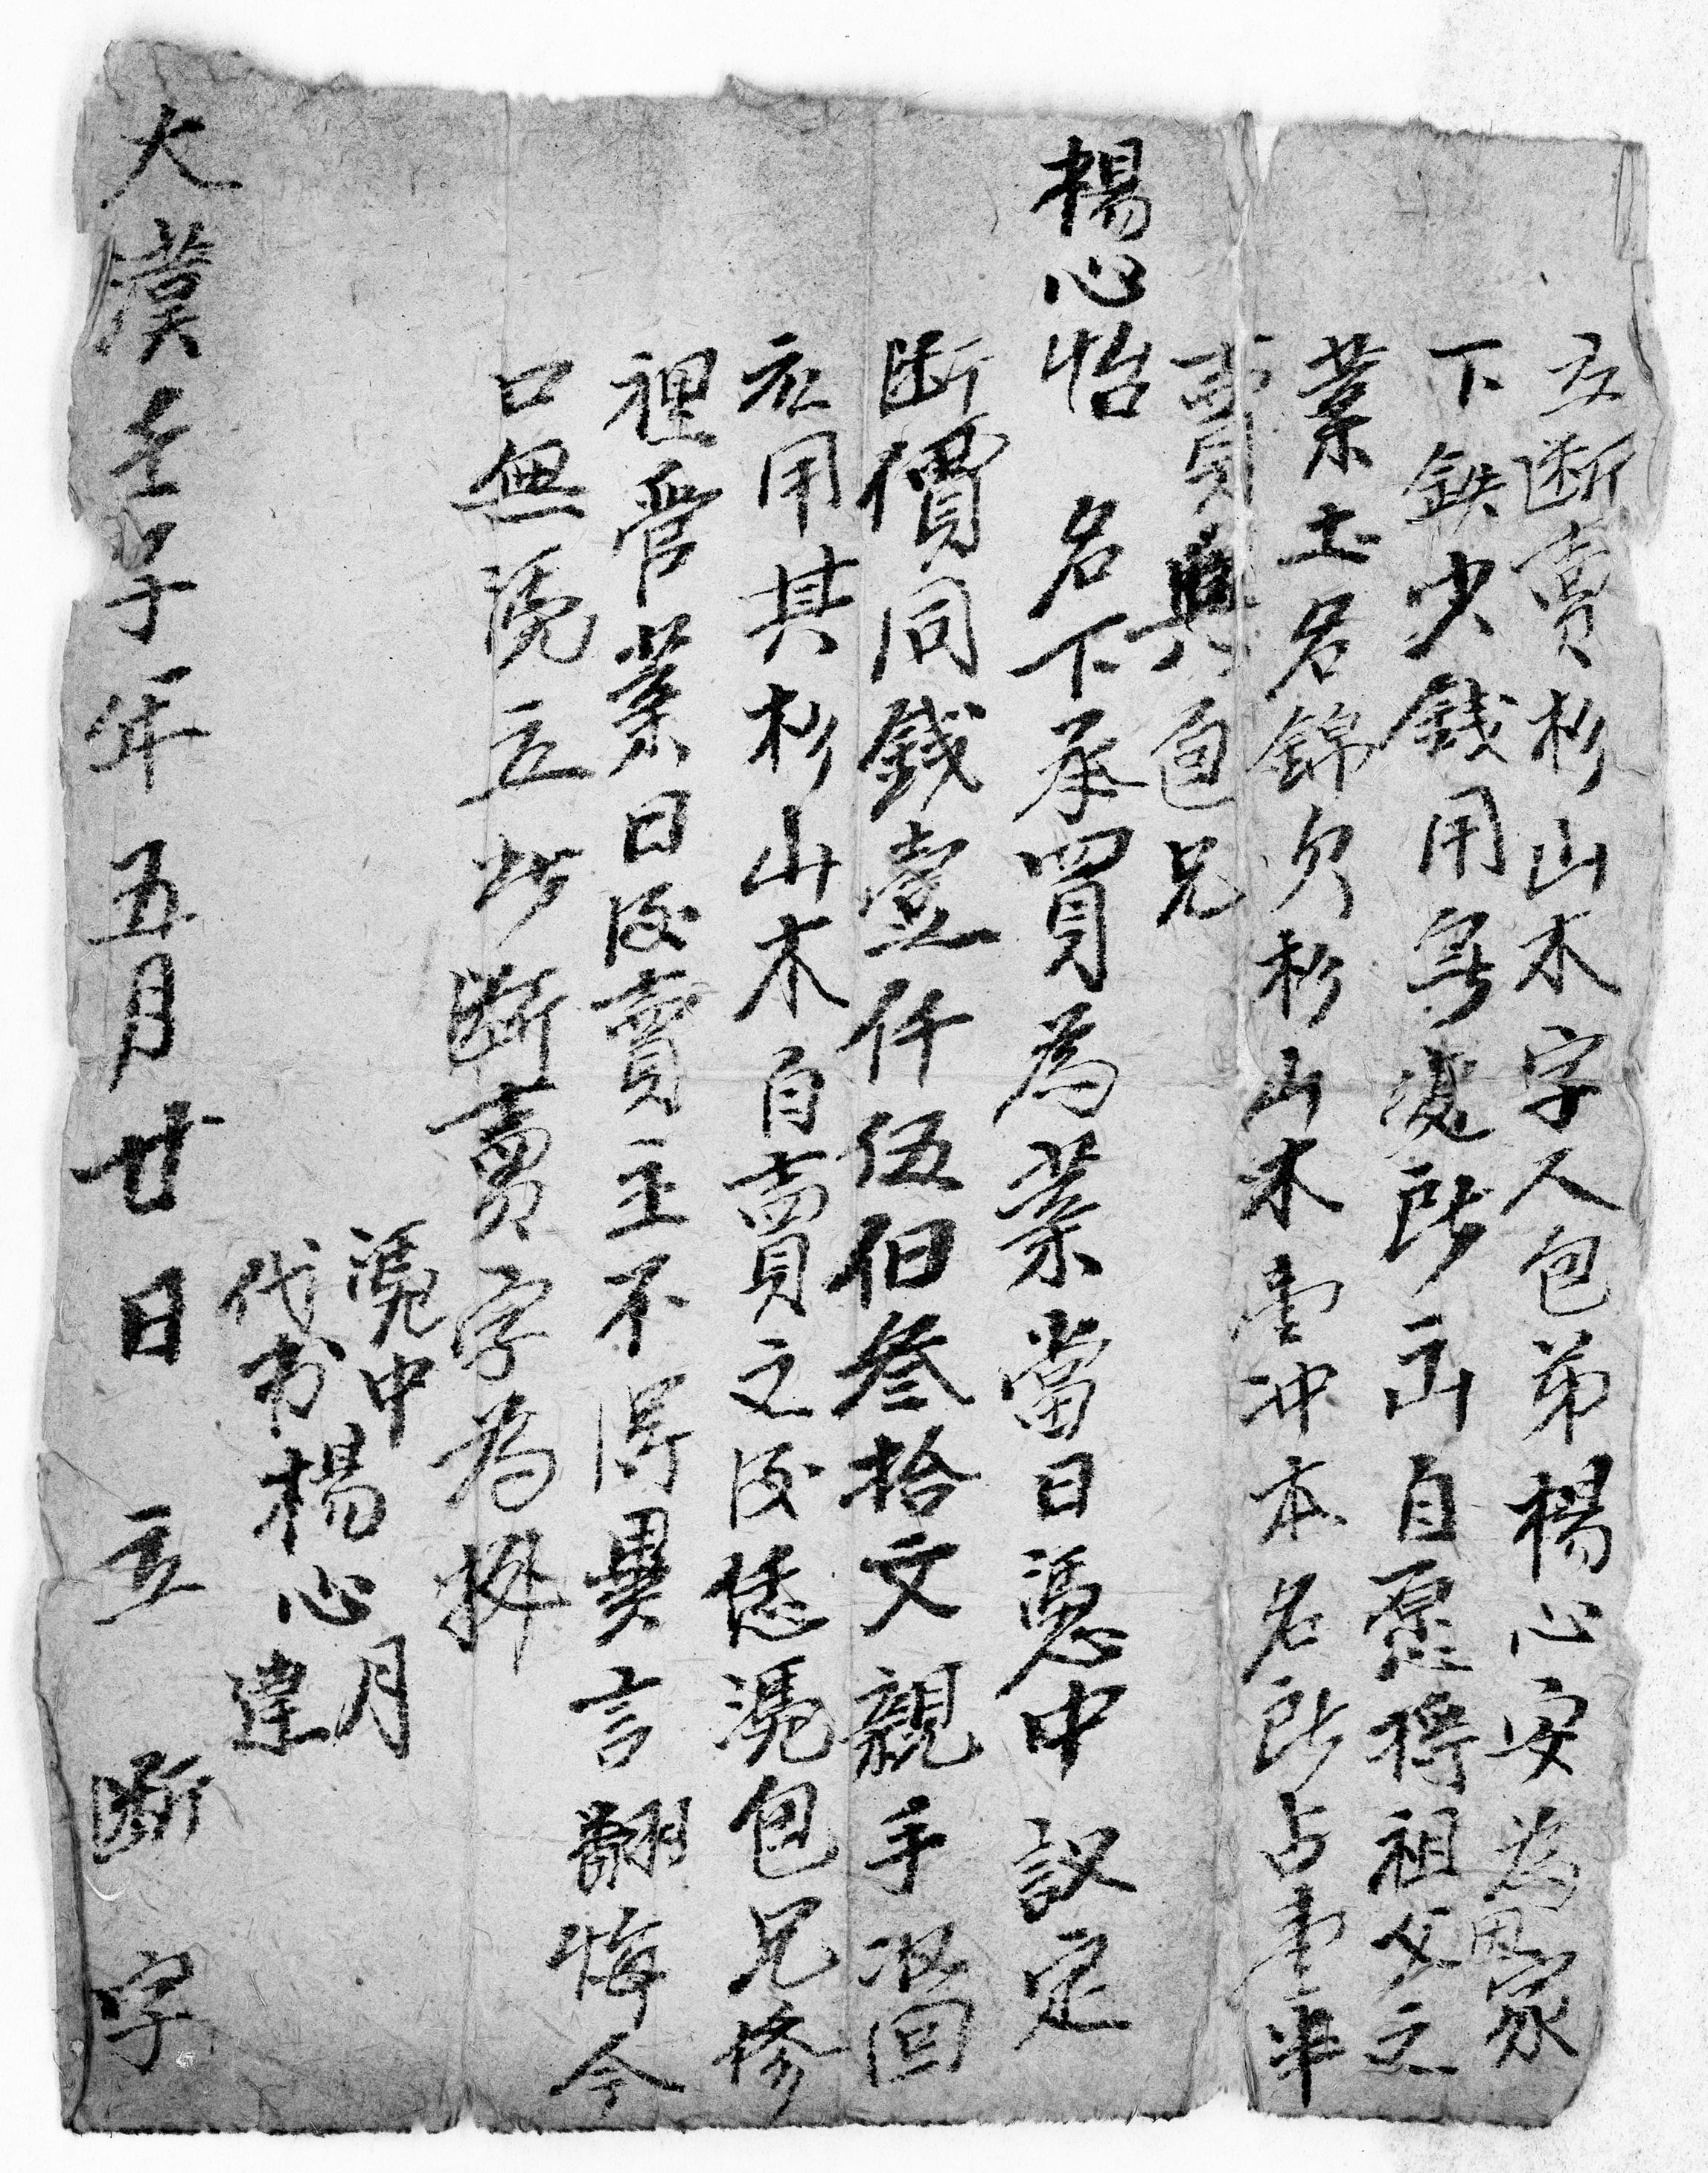 立断賣杉山木字人包弟楊心安為因家
下缺少錢用無處所出自愿将祖父之
業土名錦欠杉山木壹冲本名所占壹半
賣與包兄
楊心怡名下承買為業當日憑中議定
断價同錢壹仟伍伯叁拾文親手収回
应用其杉山木自賣之後恁憑包兄修
裡管業日後賣主不得異言翻悔今
口無憑立此斷賣字為拠
憑中楊心月
代书楊心達
大漢壬子年五月廿日立断字